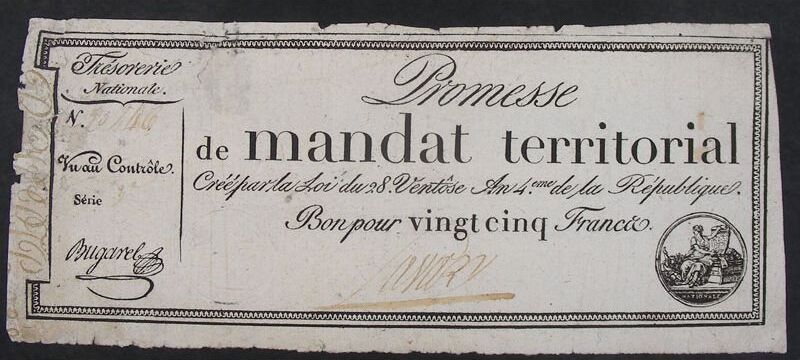 Trésorerie
Nationale.
N.
Vu au Contrôle.
Série
Bugarel
Promesse
de mandat territorial
Créé par la Loi du 28. Ventôse An 4.eme de la République.
Bon pour vingt cinq Francs.
NATIONALE